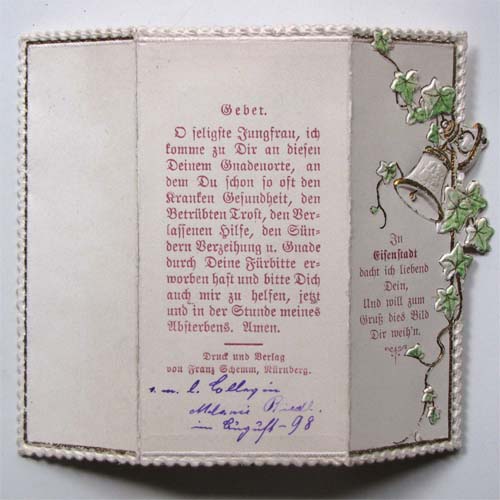 Gebet.
O seligste Jungfrau, ich
komme zu Dir an diesen
Deinem Gnadenorte, an
dem Du schon so oft den
Kranken Gesundheit, den
Betrübten Trost, den Ver-
lassenen Hilfe, den Sün-
dern Verzeihung u. Gnade
durch Deine Fürbitte er-
worben hast und bitte Dich
auch mir zu helfen, jetzt
und in der Stunde meines
Absterbens. Amen.
Druck und Verlag
von Franz Schemm, Nürnberg.
v. m. l. Collegin
Melanie
im August - 98
In
Eisenstadt
dacht ich liebend
Dein,
Und will zum
Gruß dies Bild
Dir weih'n.